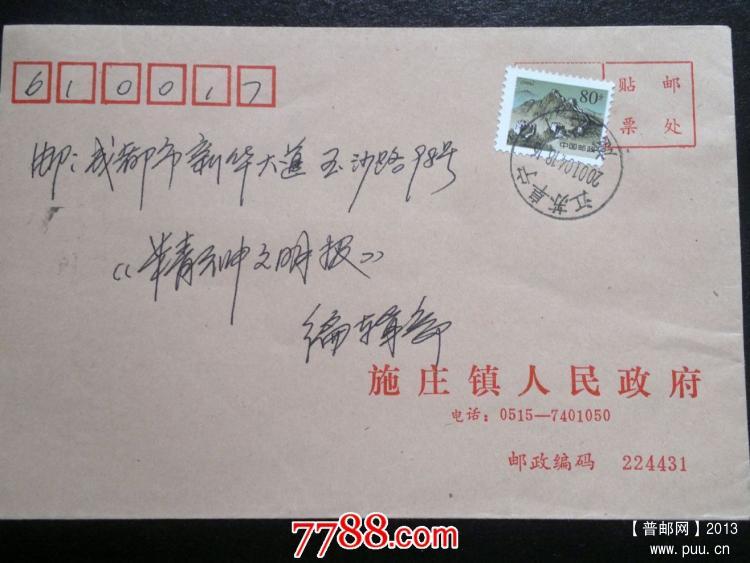 610017
贴 邮
票 处
80分
中国邮政
江苏阜宁
2001.04.18
邮：成都市新华大道玉沙路98号
《精神文明报》
编辑部
施庄镇人民政府
电话：0515—7401050
邮政编码 224431
7788.com
【普邮网】2013
www.puu.cn